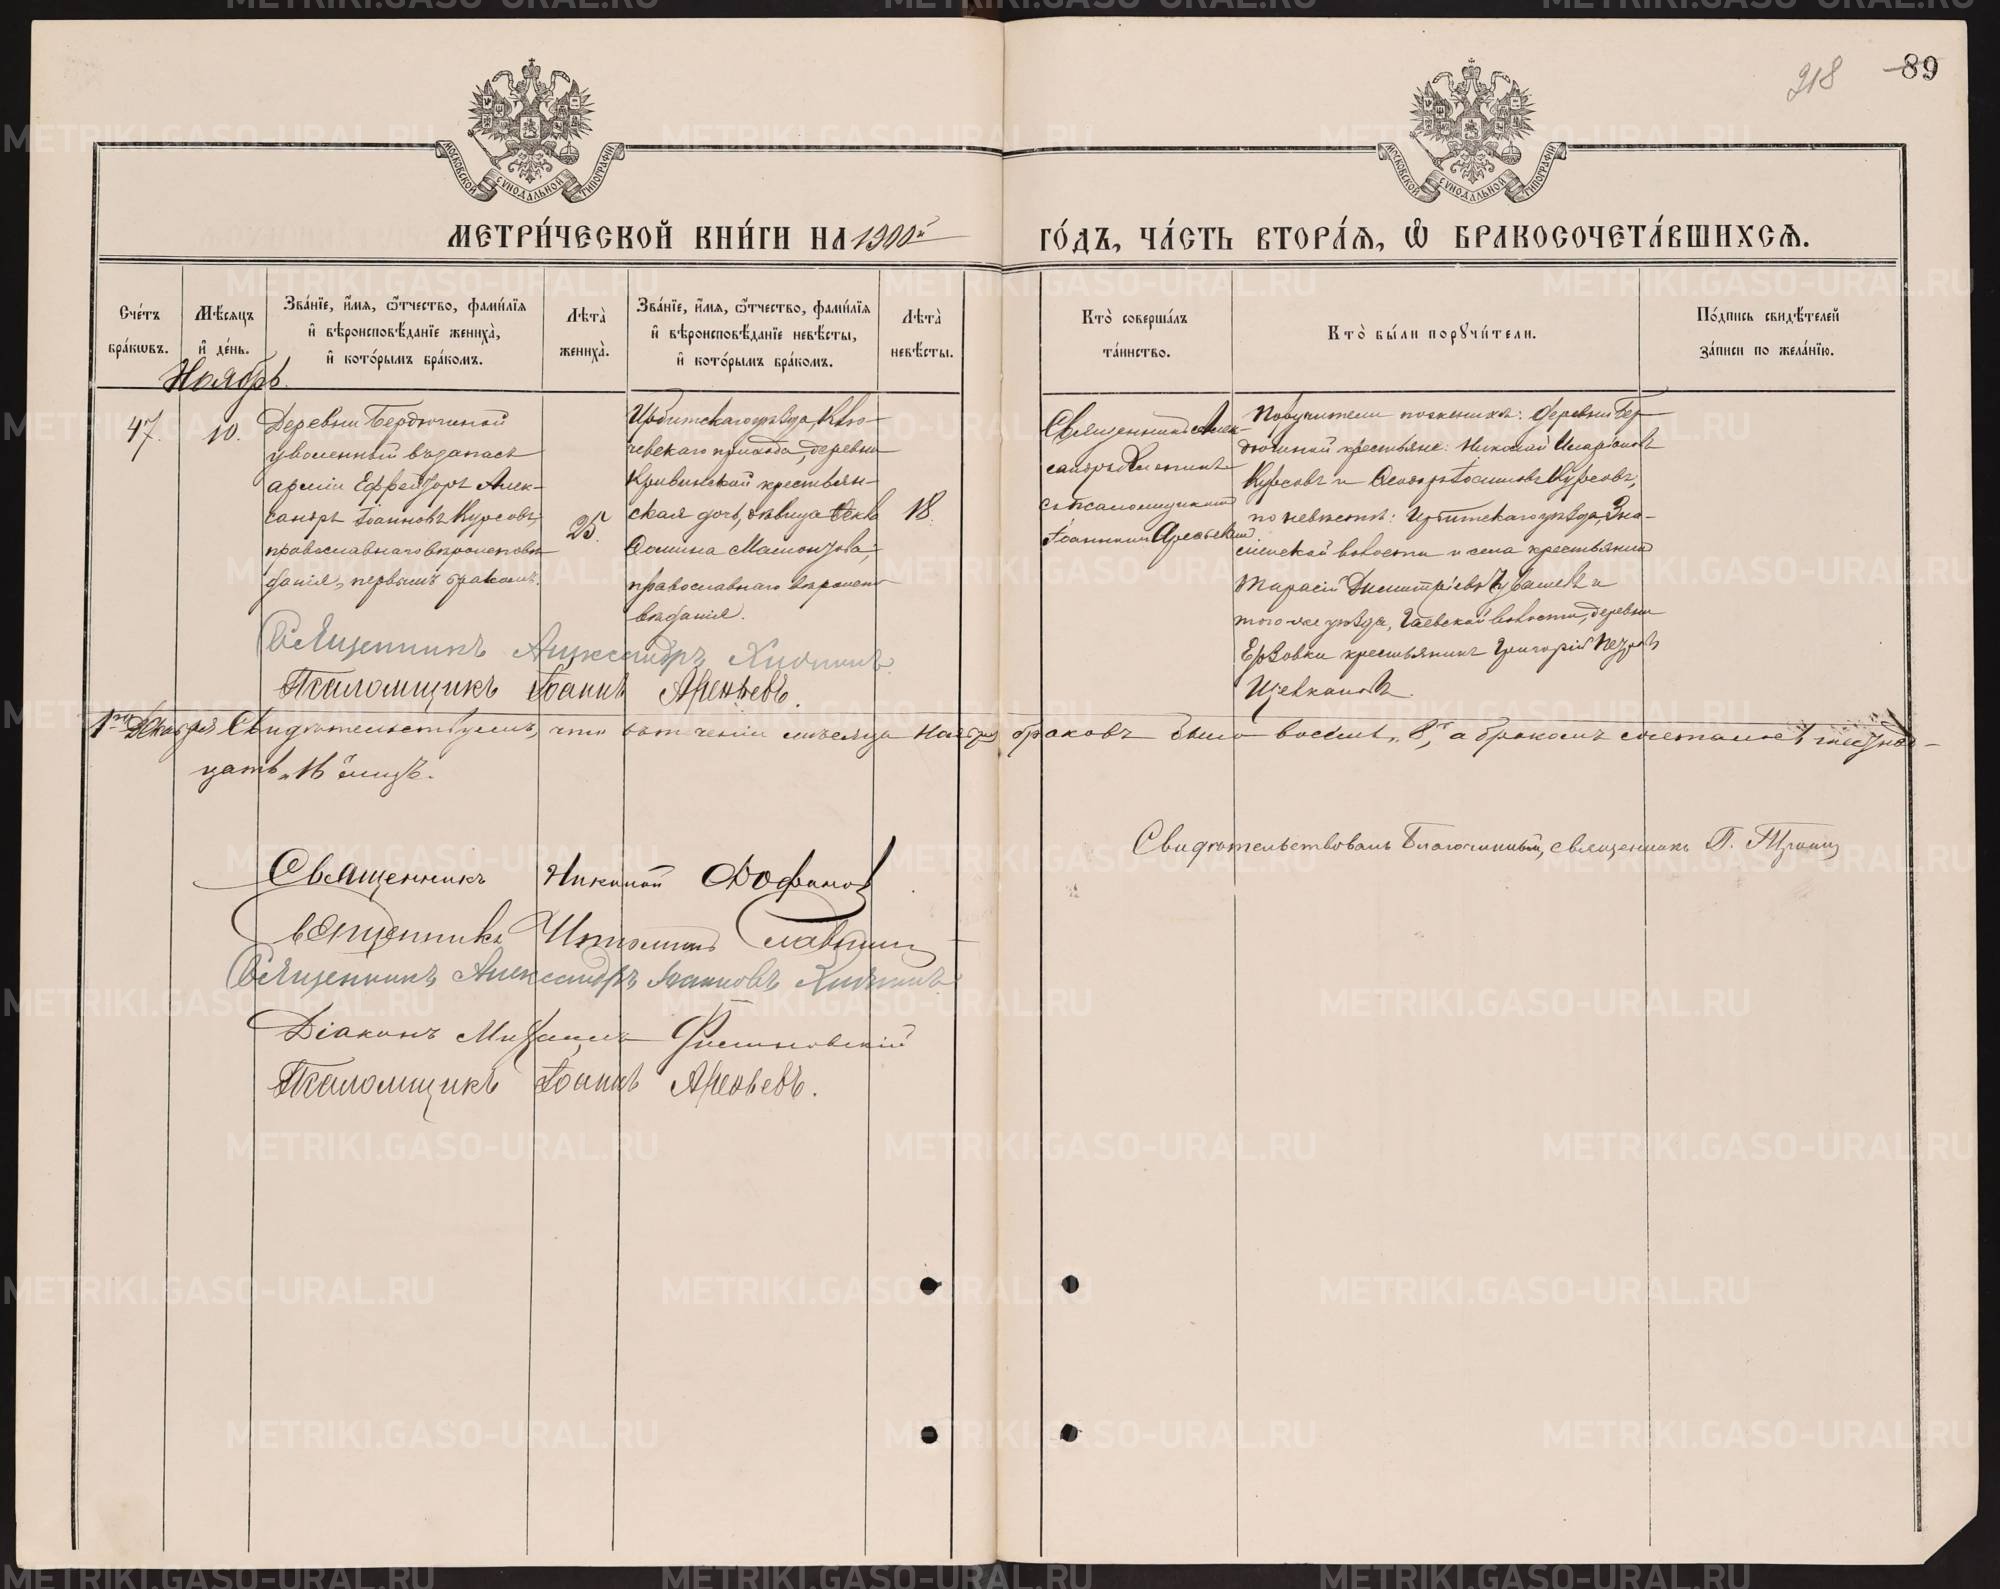 218 89
МОСКОВСКОЙ СѴНОДАЛЬНОЙ ТИПОГРАФІИ
МОСКОВСКОЙ СѴНОДАЛЬНОЙ ТИПОГРАФІИ
МЕТРИ́ЧЕСКОЙ КНИ́ГИ НА 1900й ГО́ДЪ, ЧА́СТЬ ВТОРА́Ѧ, Ѽ БРАКОСОЧЕТА́ВШИХСѦ.
Сче́тъ бра́кѡвъ.
Мѣ́сѧцъ и҆ де́нь.
Зва́нїе, и҆́мѧ, ѻ҆́тчество, фами́лїѧ и҆ вѣроисповѣ́данїе жениха̀, и҆ кото́рымъ бра́комъ.
Лѣ́та̀ жениха̀.
Зва́нїе, и҆́мѧ, ѻ҆́тчество, фами́лїѧ и҆ вѣроисповѣ́данїе невѣ́сты, и҆ кото́рымъ бра́комъ.
Лѣ́та̀ невѣ́сты.
Кто̀ соверша́лъ та́инство.
Кто̀ бы́ли порꙋчи́тели.
По́дпись свидѣ́телей за́писи по жела́нїю.
Ноябрь.
47.
10.
Деревни Бердюгиной
уволенный въ запасъ
арміи Ефрейторъ Алек-
сандръ Іоанновъ Курсовъ,
православнаго вѣроисповѣ-
данія, первымъ бракомъ.
25.
Ирбитскаго уѣзда, Клю-
чевскаго прихода, деревни
Кривинской крестьян-
ская дочь, дѣвица Ѳекла
Ѳомина Мамонтова,
православнаго вѣроиспо-
вѣданія.
18.
Священникъ Алек-
сандръ Хитинъ
съ псаломщикомъ
Іоанномъ Арсеньевымъ.
Поручители по женихѣ: деревни Бер-
дюгиной крестьяне: Николай Иларіоновъ
Курсовъ и Ѳеодоръ Іоанновъ Курсовъ,
по невѣстѣ: Ирбитскаго уѣзда, Зна-
менской волости и села крестьянинъ
Тарасій Димитріевъ Чувашевъ и
того же уѣзда, Гаевской волости, деревни
Ерзовки крестьянинъ Григорій Петровъ
Щевкановъ.
Священникъ Александръ
Псаломщикъ Іоаннъ Арсеньевъ.
1го Декабря Свидѣтельствуемъ, что въ теченіи мѣсяца Ноября браковъ было восемь „8“, а бракомъ сочеталось шестнад-
цать „16“ лицъ.
Свидѣтельствовалъ Благочинный, священникъ П.
Священникъ Николай
Священникъ Ипполитъ Славнинъ
Священникъ Александръ Іоанновъ
Діаконъ Михаилъ
Псаломщикъ Іоаннъ Арсеньевъ.